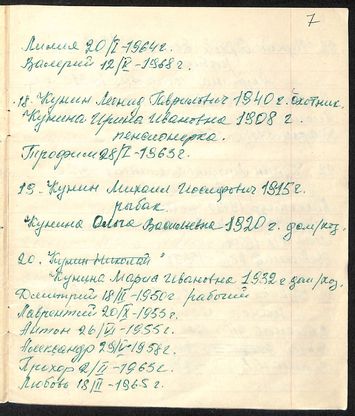 7
Лилия 20/I-1964г.
Валерий 12/IV-1968г.
18. Кунин Леонид Гаврилович 1940г. Охотник.
Кунина Ирина Ивановна 1908 г.
пенсионерка.
Трофим 28/I-1963г.
19. Кунин Михаил Иосифович 1915г.
рыбак.
Кунина Ольга Васильевна 1920г. дом/хоз.
20. Кунин Николай
Кунина Мария Ивановна 1932 г дом/хоз.
Дмитрий 18/III-1950г. рабочий
Лаврентий 20/IX-1953г.
Антон 26/VI-1955г.
Александр 29/V-1958г.
Прохор 2/II-1963г.
Любовь 18/III-1965г.